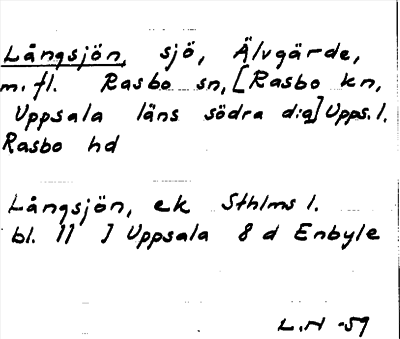 Långsjön, sjö, Älvgärde,
m. fl. Rasbo sn, [Rasbo kn,
Uppsala läns södra d:q] Upps. l.
Rasbo hd
Långsjön, ek Sthlms l.
bl. 11 J Uppsala 8 d Enbyle
L.N -59